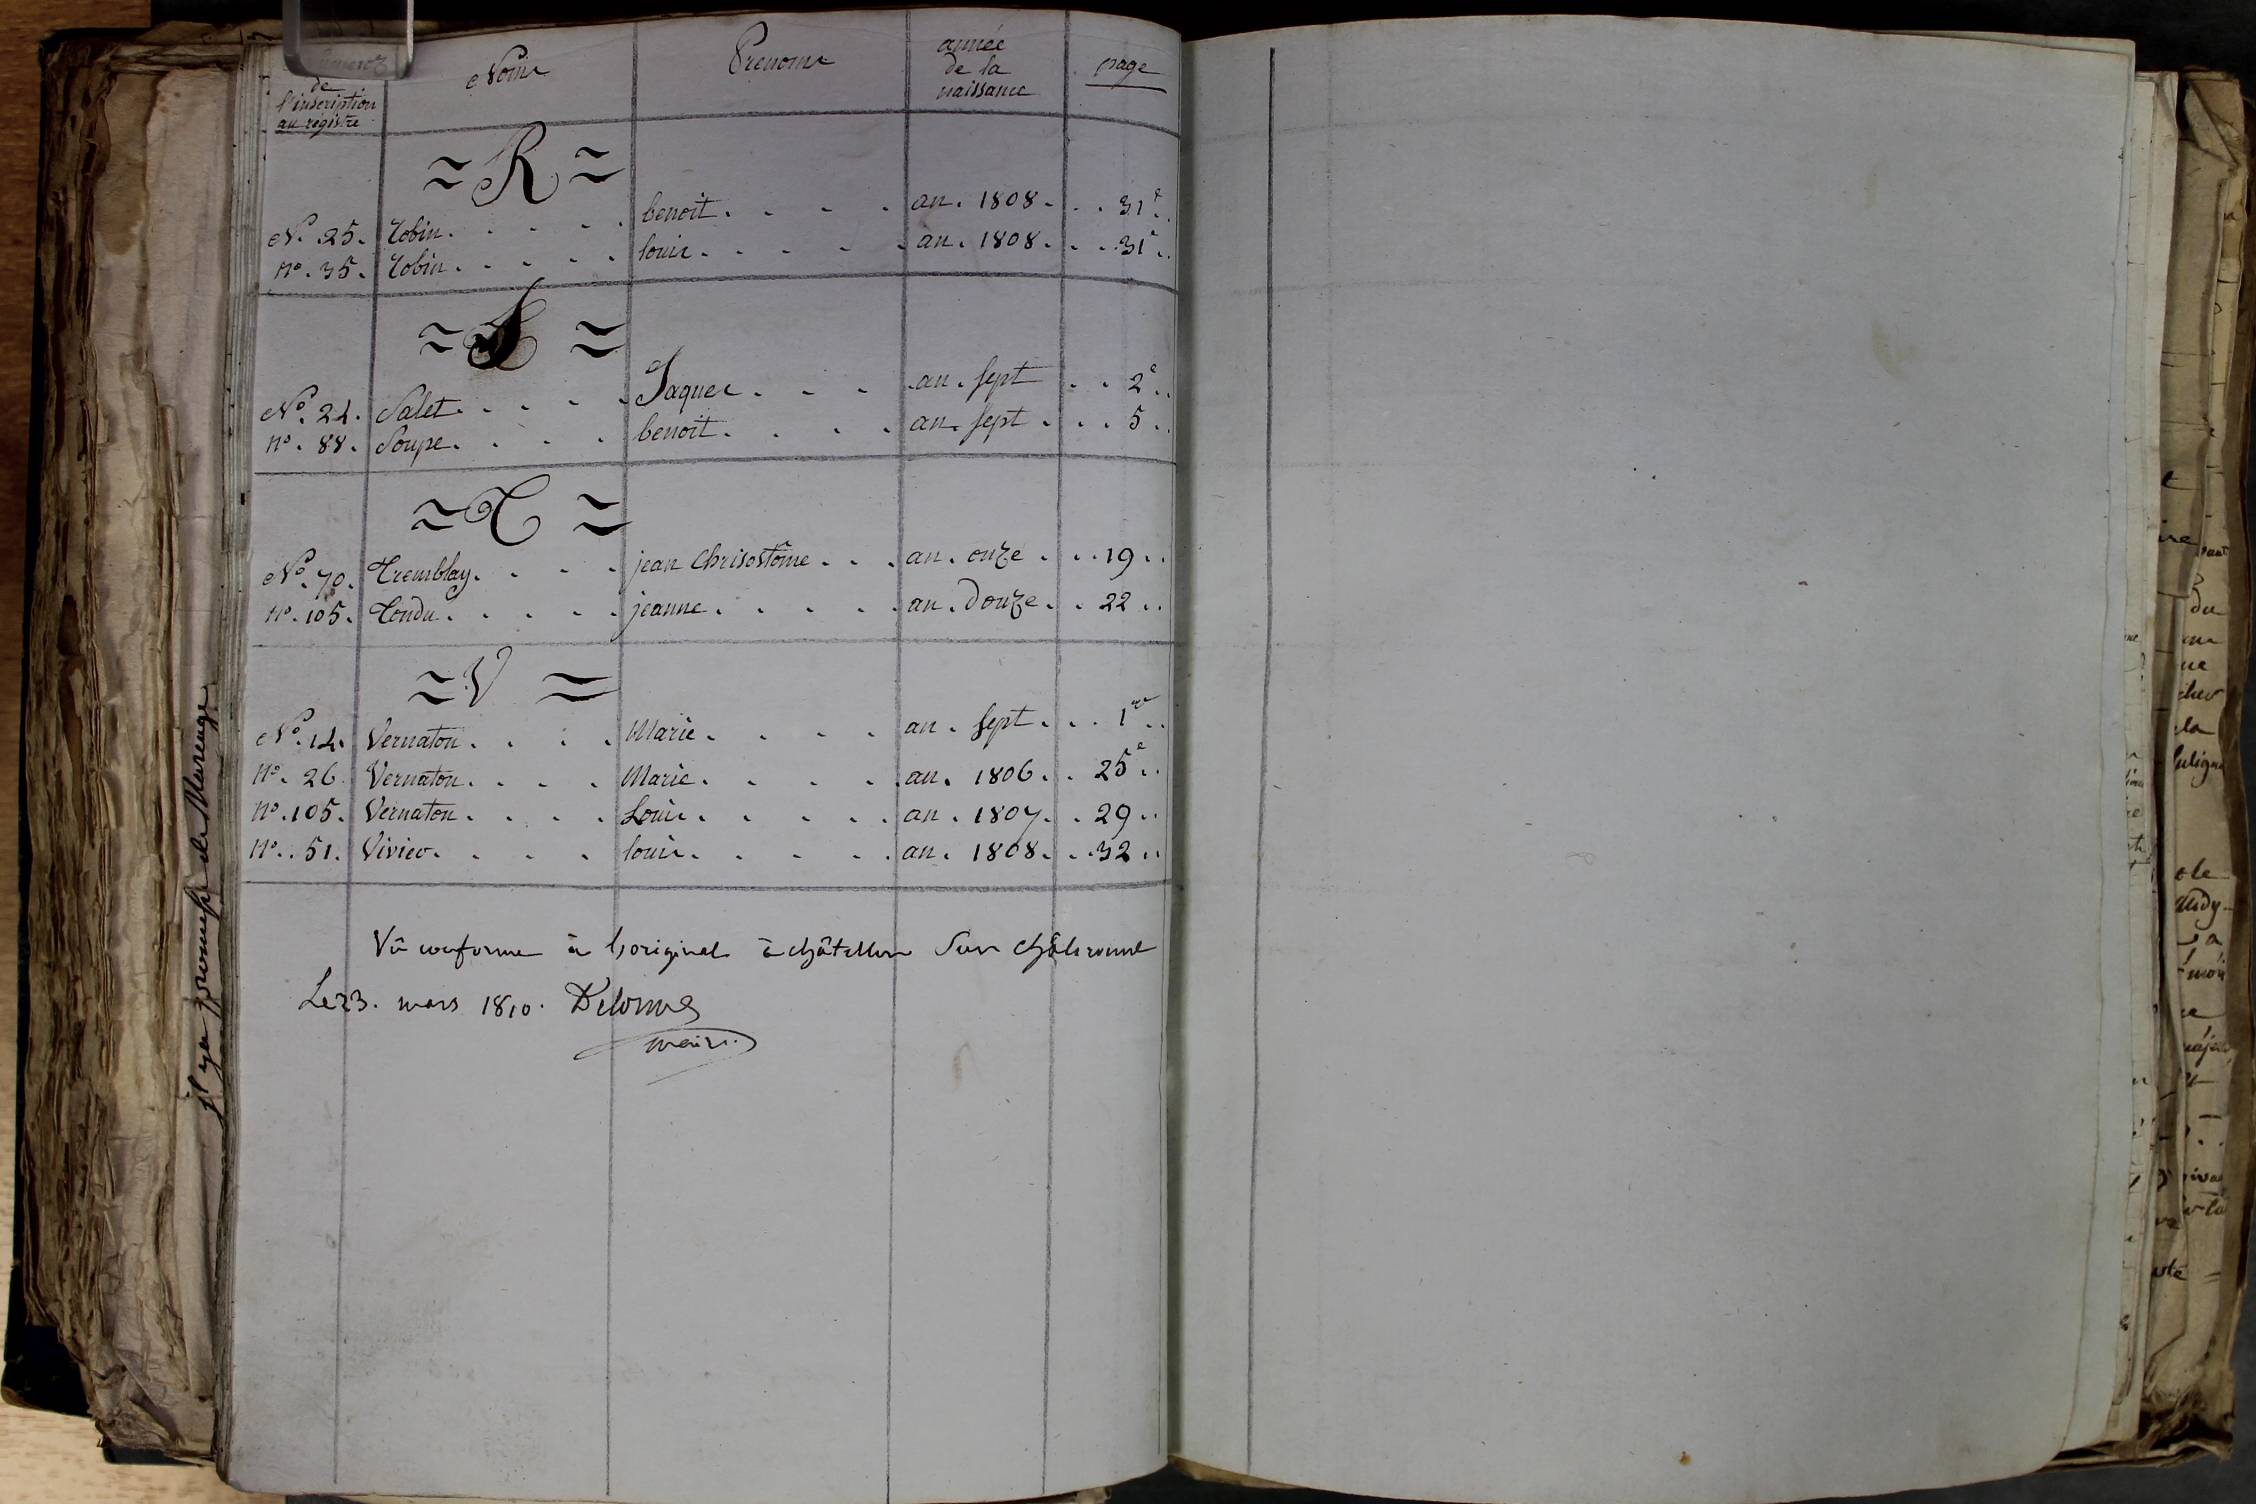 de
l'inscription
au registre
Noms
Prenoms
année
de la
naissance
page
R
N°. 25. Robin. benoit. an. 1808. 31e.
n°. 35. Robin. louis. an. 1808. 31e.
S
N°. 24. Salet. Jaques. an. sept 2e.
n°. 88. Soupe. benoit. an. sept. 5.
T
N°. 70. Tremblay. jean Chrisostôme. an. onze. 19.
n°. 105. Tondu. jeanne. an. Douze. 22.
V
N°. 14. Vernaton. Marie. an. sept. 1re.
n°. 26. Vernaton. Marie. an. 1806. 25e.
n°. 105. Vernaton. Louis. an. 1807. 29.
n°. 51. Vivier. louis. an. 1808. 32.
Vû conforme à l'original à châtillon sur chalaronne
Le 23. mars 1810. Delorme
maire.
il y a promesse de Mareage